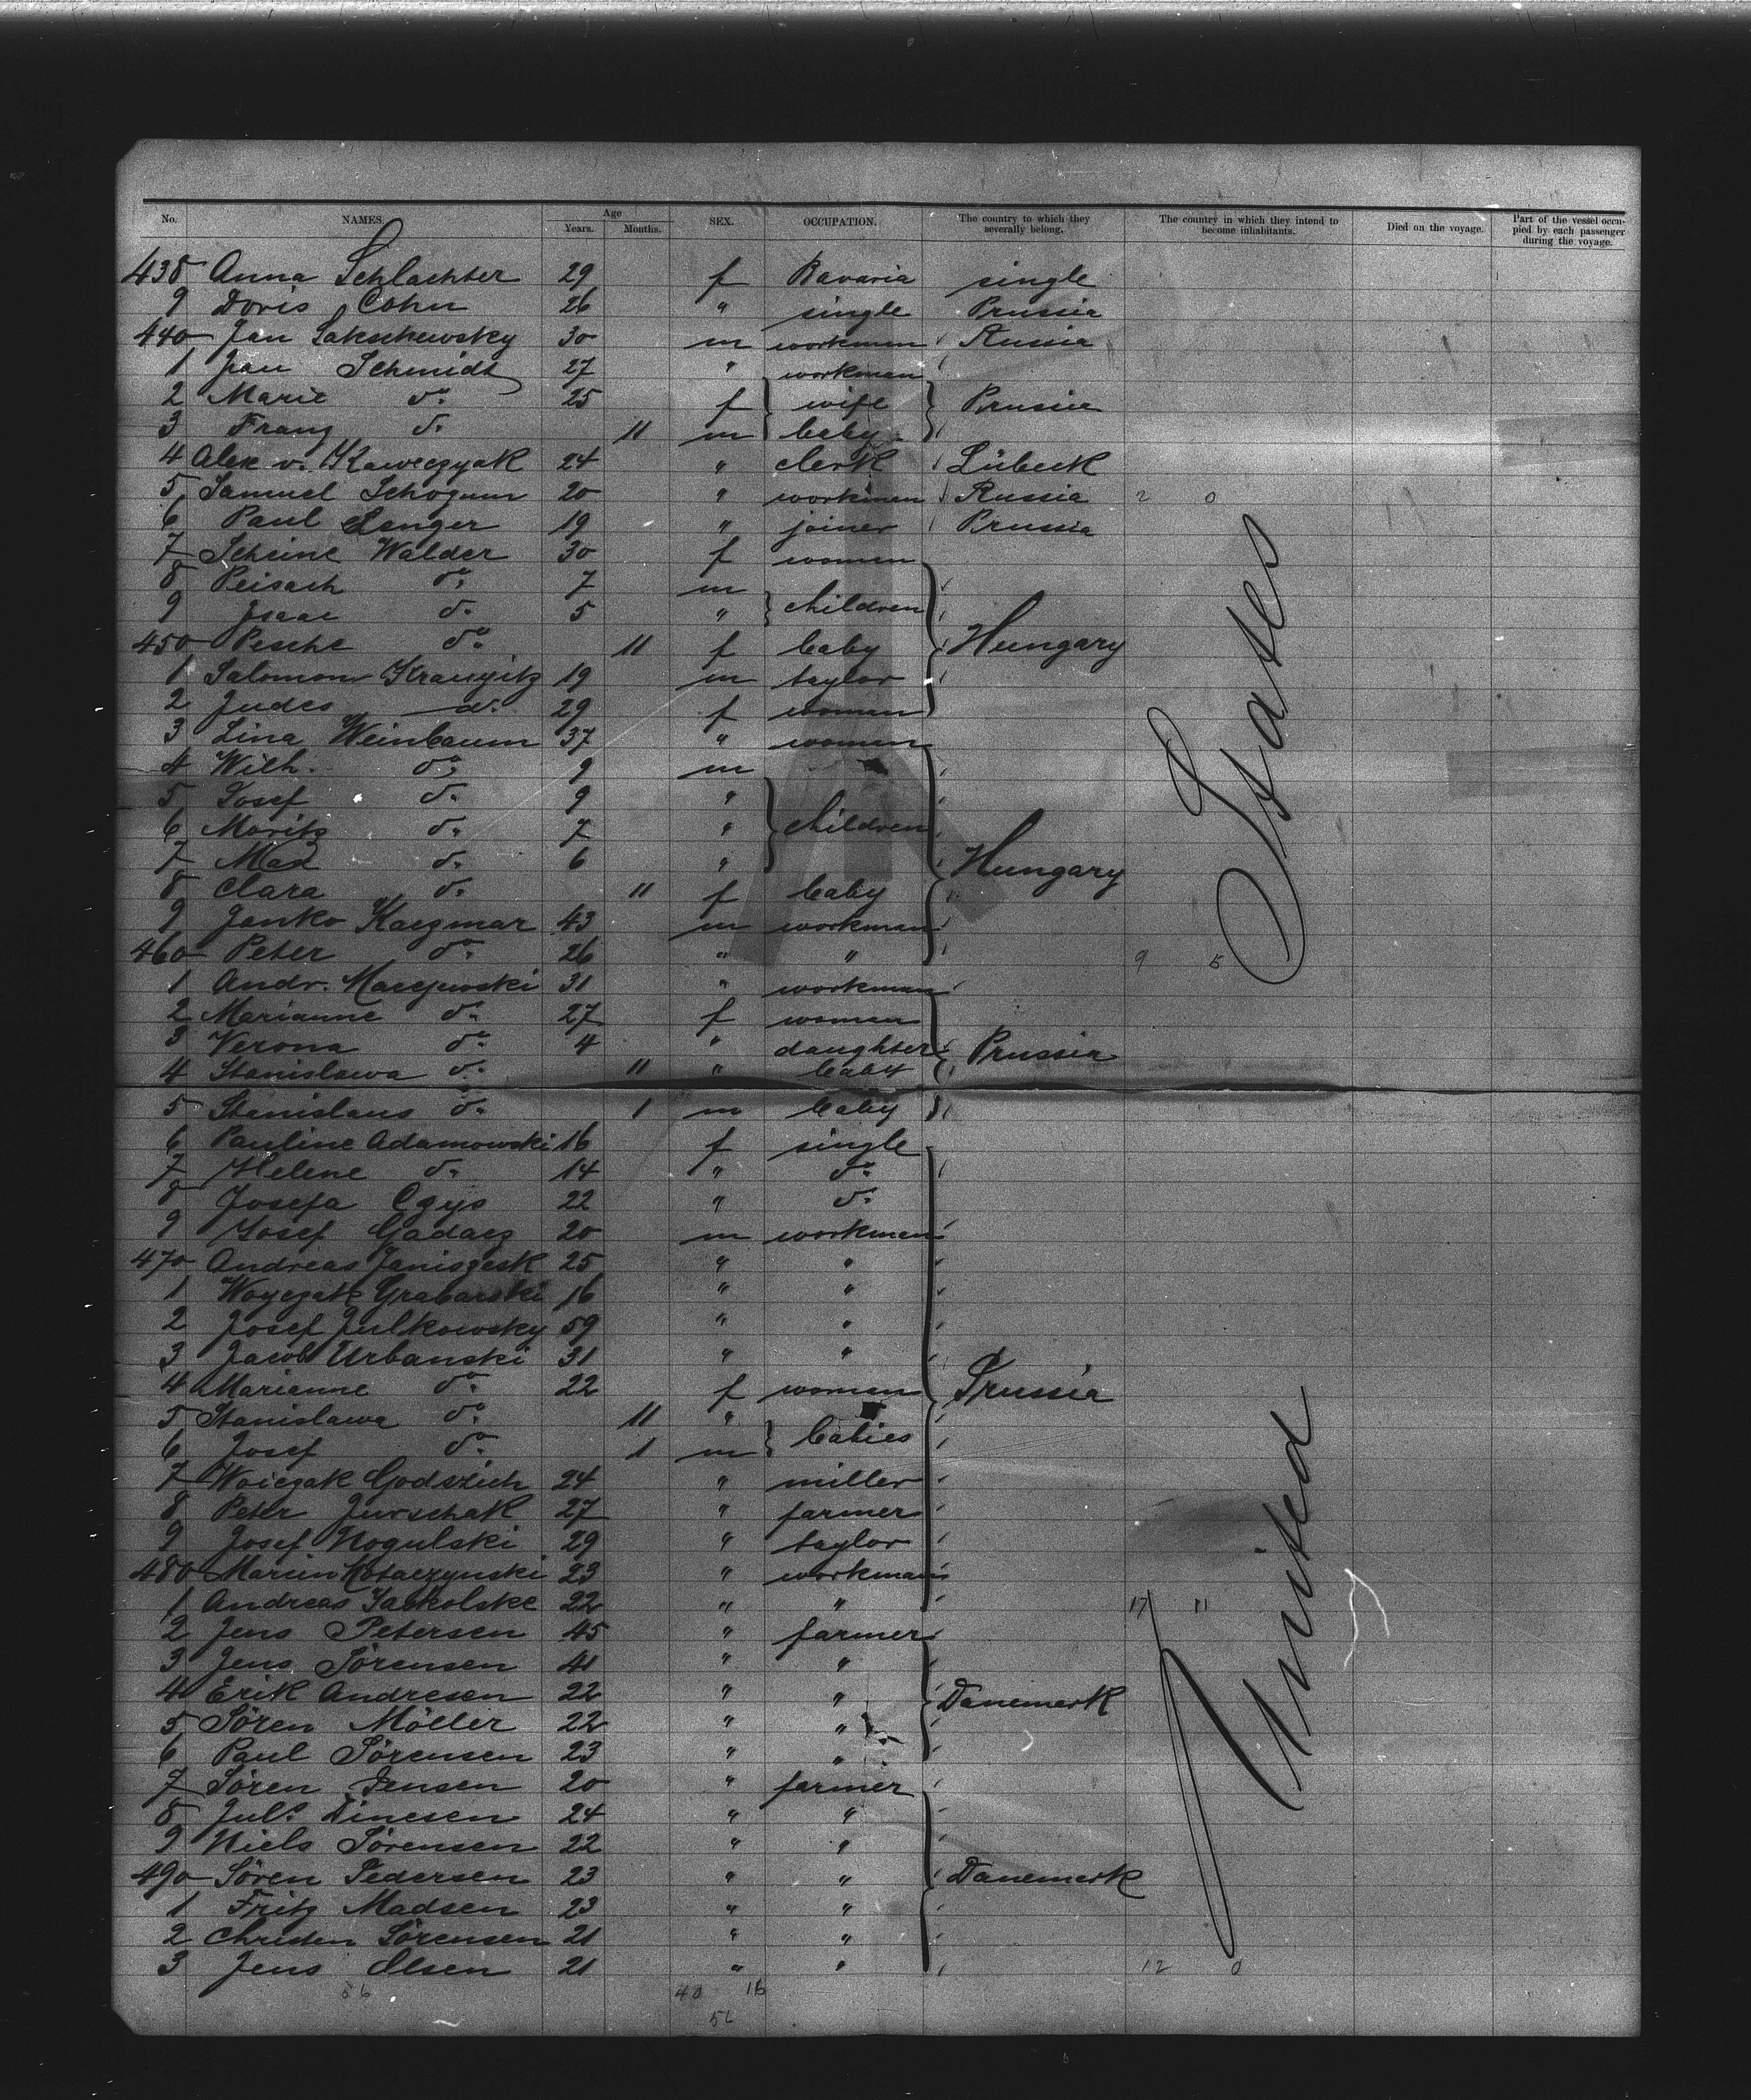 No. NAMES. Age Years. Months. SEX. OCCUPATION. The country to which they severally belong. The country in which they intend to become inhabitants. Died on the voyage. Part of the vessel occupied by each passenger during the voyage.
438 Anna Schlachter 29 f Bavaria single
9 Doris Cohn 26 " single Prussia
440 Jan Sakschewsky 30 m workman Russia
1 Jan Schmidt 27 " workman
2 Marie do. 25 f wife Prussia
3 Franz do. 11 m baby
4 Alex v. Kaweczyak 24 " clerk Lübeck
5 Samuel Schogum 20 " workman Russia 2 0
6 Paul Langer 19 " joiner Prussia
7 Scheine Walder 30 f woman
8 Peisach do. 7 m
9 Isaac do. 5 " children
450 Pesche do. 11 f baby Hungary
1 Salomon Kranyitz 19 m taylor
2 Judes do. 29 f woman
3 Lina Weinbaum 37 " woman
4 Wilh. do. 9 m
5 Josef do. 9 "
6 Moritz do. 7 " children
7 Max do. 6 " Hungary
8 Clara do. 11 f baby
9 Janko Kaczmar 43 m workman
460 Peter do. 26 " " 9 5
1 Andr. Macejewski 31 " workman
2 Marianne do. 27 f woman
3 Verona do. 4 " daughter Prussia
4 Stanislawa do. 11 " baby
5 Stanislaus do. 1 m baby
6 Pauline Adamowski 16 f single
7 Helene do. 14 " do.
8 Josefa Czys 22 " do.
9 Josef Gadacz 20 m workman
470 Andreas Janiszesk 25 " "
1 Woyczak Grabarski 16 " "
2 Josef Julkowsky 59 " "
3 Jacob Urbanski 31 " "
4 Marianne do. 22 f woman Prussia
5 Stanislawa do. 11 "
6 Josef do. 1 m babies
7 Woiczak Godszich 24 " miller
8 Peter Jurschak 27 " farmer
9 Josef Nogulski 29 " taylor
480 Marcin Kotaczynski 23 " workman
1 Andreas Jaskolske 22 " " 17 11
2 Jens Petersen 45 " farmer
3 Jens Sörensen 41 " "
4 Erik Andresen 22 " " Danemark
5 Sören Möller 22 " "
6 Paul Sörensen 23 " "
7 Sören Jensen 20 " farmer
8 Juls. Dinesen 24 " "
9 Niels Sörensen 22 " "
490 Sören Pedersen 23 " " Danemark
1 Fritz Madsen 23 " "
2 Christen Sörensen 21 " "
3 Jens Olsen 21 " " 12 0
56 40 16
56
United States